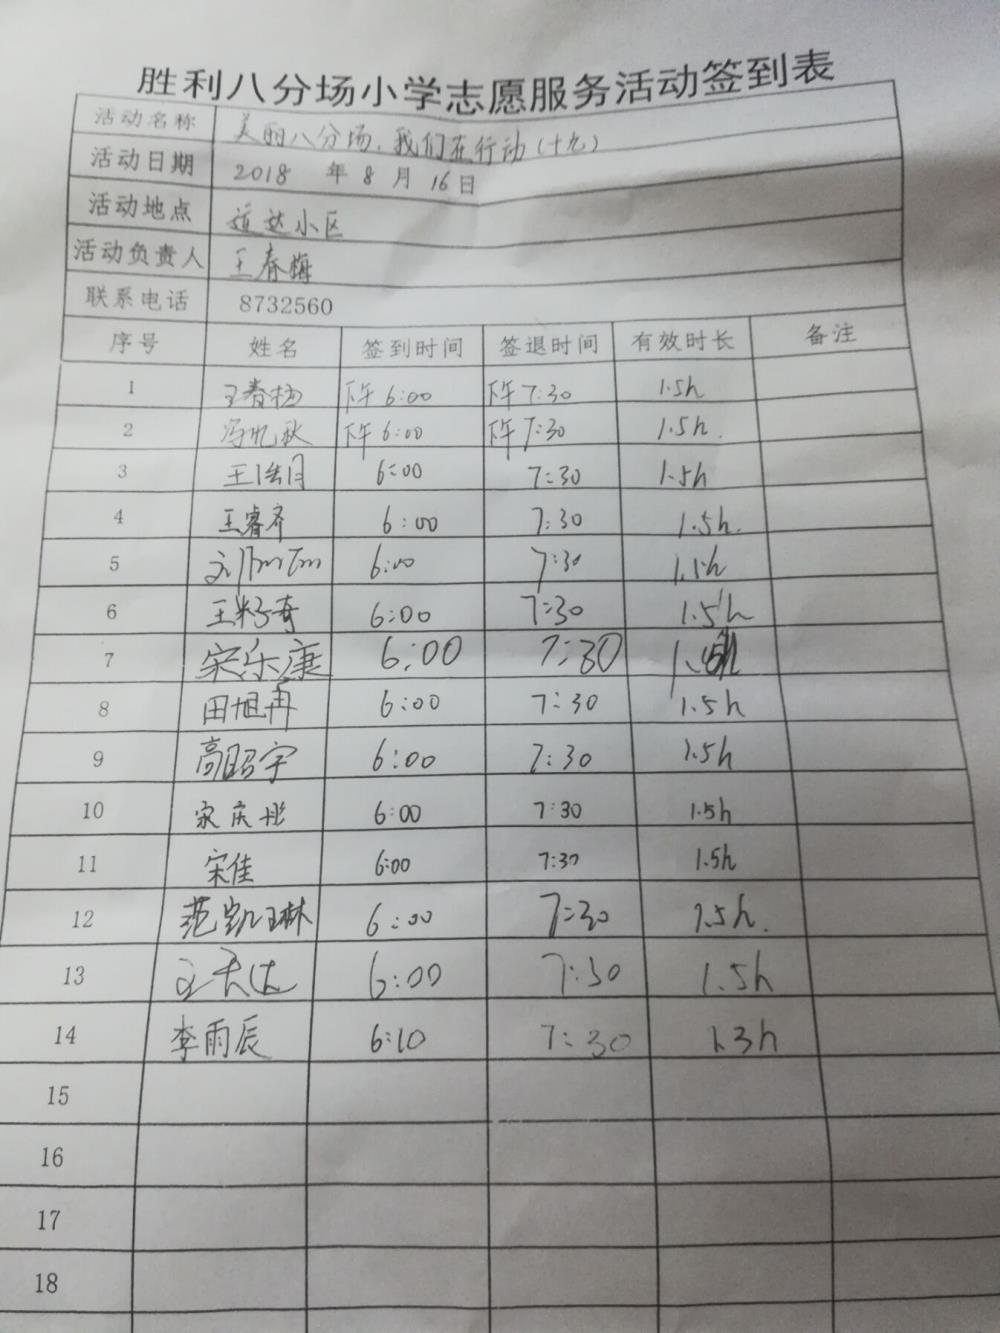 胜利八分场小学志愿服务活动签到表
活动名称 美丽八分场,我们在行动(十九)
活动日期 2018 年 8 月 16日
活动地点 运达小区
活动负责人 王春梅
联系电话 8732560
序号 姓名 签到时间 签退时间 有效时长 备注
1 王春杨 下午 6:00 下午 7:30 1.5h
2 冯忆秋 下午 6:00 下午 7:30 1.5h.
3 王浩月 6:00 7:30 1.5h
4 王睿齐 6:00 7:30 1.5h.
5 6:00 7:30 1.5h
6 王籽奇 6:00 7:30 1.5h
7 宋乐康 6:00 7:30 1.5h
8 田旭冉 6:00 7:30 1.5h
9 高昭宇 6:00 7:30 1.5h
10 宋庆彤 6:00 7:30 1.5h
11 宋佳 6:00 7:30 1.5h
12 范凯琳 6:00 7:30 1.5h.
13 6:00 7:30 1.5h
14 李雨辰 6:10 7:30 1.3h
15
16
17
18